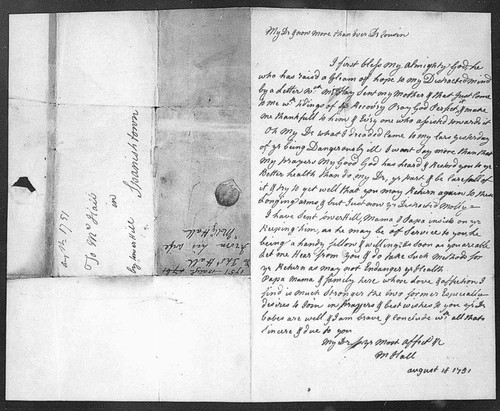 My Dr & now more than Ever Dr Cousin
I first bless my Almighty God, he
who has raised a Gleam of hope to my Distracted mind
by a letter wch Mr Hay sent my Mother & that Just came
to me wth tidings of yr Recovery Pray God Perfect it & make
me thankfull to him & Evry one who assisted towards it
Oh My Dr what I dreaded came to my Ears yesterday
of yr being Dangerously ill I want say more than that
My prayers My Good God has heard & Restord you to yr
Better health then do, My Dr, yr part & be Carefull of
it & try to get well that you may Return again to these
Longing arms of but Just now yr Distracted Molly
I have sent Hill, Mama & Papa insists on yr
Keeping him, as he may be of Service to you he
being a handy fellow & willing: As soon as you are well
Let me Hear from you & do take Such Methods for
yr Return as may not Endanger yr Health
Papa Mama & family here whose Love & affection I
find is much Stronger the two former Especially
desires to Join in prayers & best wishes to you yr Dr
babes are well & I am brave & conclude wth all that
sincere & due to you
My Dr yr Most affect &c
M Hall
august 18 1751
To Mr Hall
in
Spanish Town
1751 august
Thos Hall
from his wife
Molly Hall